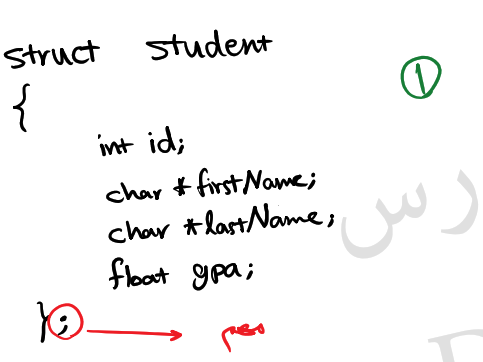 struct student
①
{
int id;
char *firstName;
char *lastName;
float gpa;
};
مهم